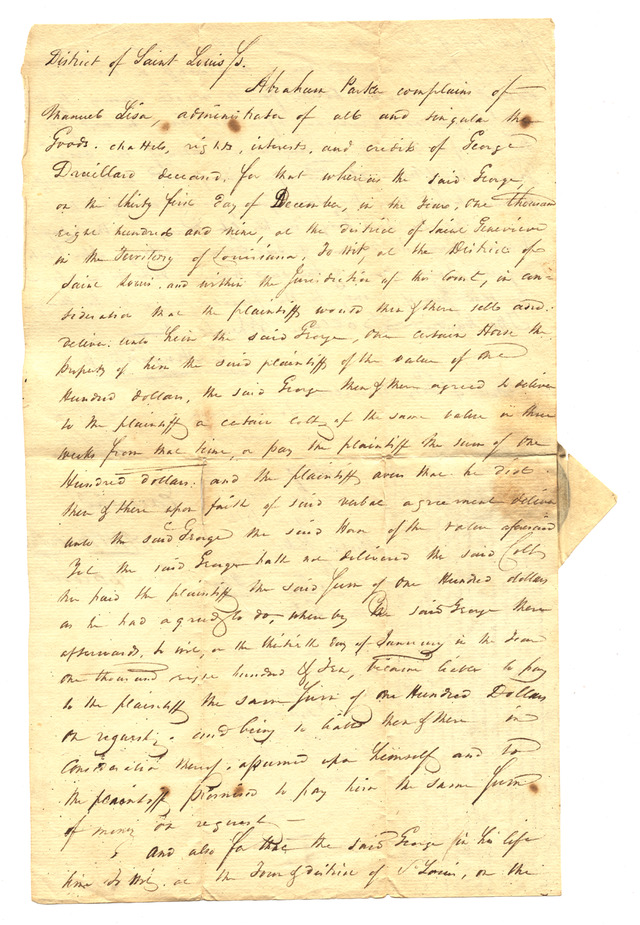 District of Saint Louis Ss.
Abraham Parker complains of
Manuel Lisa, administrator of all and singular the
Goods. chattels, rights, interests, and credits of George
Druillard deceased. for that whereas the said George,
on the thirty first day of December, in the Year, One thousand
eight hundred and nine, at the district of Saint Genevieve
in the Territory of Louisiana. To Wit, at the District of
Saint Louis. and within the Jurisdiction of this Court, in con-
sideration that the plaintiff would then & there sell and.
deliver. unto him the said George, One certain Horse the
property of him the said plaintiff of the value of one
Hundred dollars, the said George then & there agreed to deliver
to the plaintiff a certain Colt, of the same value in three
weeks from that time, or pay the plaintiff the sum of One
Hundred dollars: and the plaintiff avers that he did.
then & there upon faith of said verbal agreement deliver
unto the said George the said Horse of the value aforesaid
Yet the said George hath not delivered the said Colt
nor paid the plaintiff the said Sum of One Hundred dollars
as he had agreed to do, where by the said George there
afterwards, to wit, on the thirtieth day of January in the Year
one thousand eight hundred & Ten, became liable to pay
to the plaintiff the same Sum of One Hundred Dollars
on request; and being so liable then & there in
Consideration thereof, assumed upon himself and to
the plaintiff promised to pay him the same Sum
of money on request —
And also for that the said George in his life
time To Wit. at the Town & district of St Louis, on the